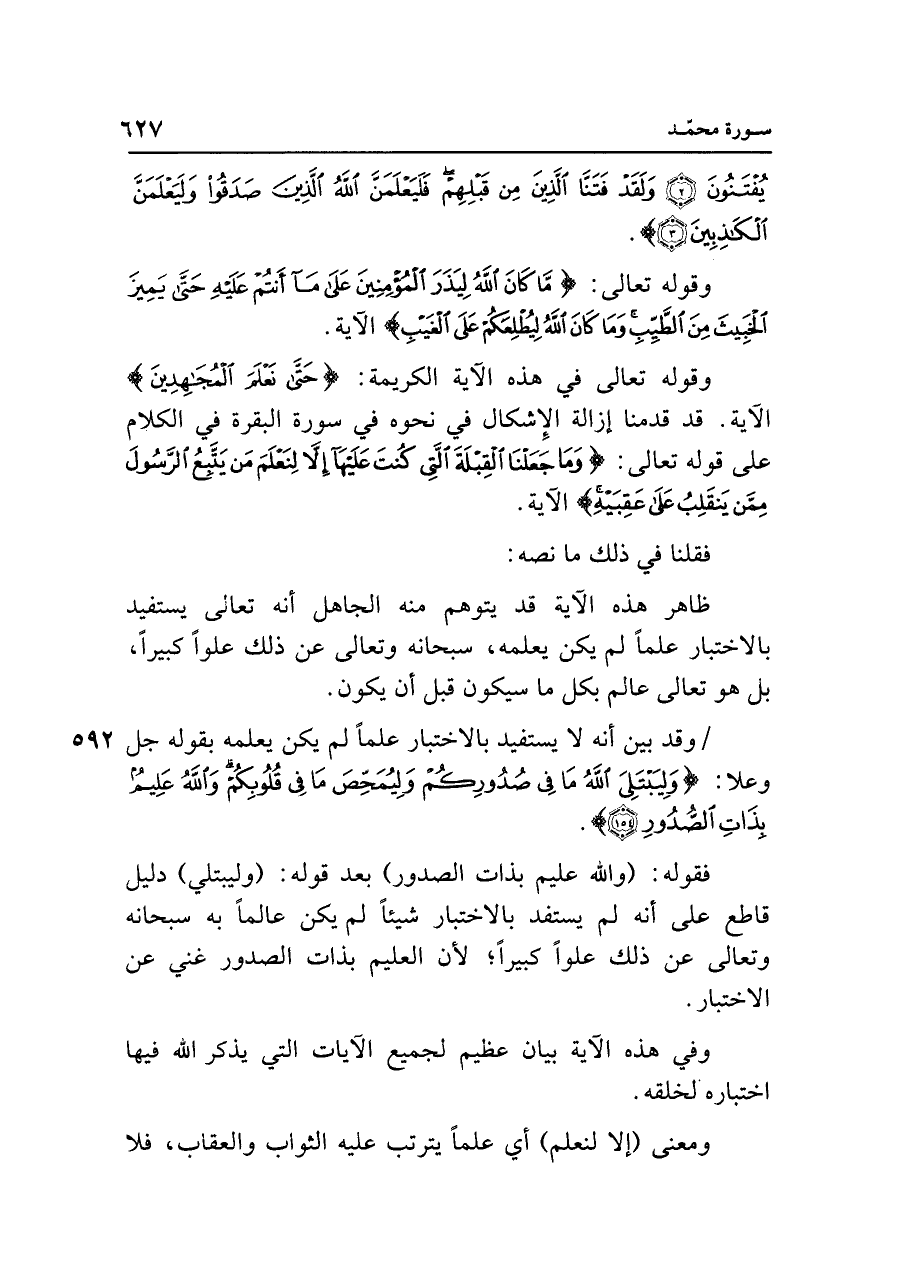 سـورة محمّـد ٦٢٧
يُفْتَنُونَ ﴿٢﴾ وَلَقَدْ فَتَنَّا ٱلَّذِينَ مِن قَبْلِهِمْۖ فَلَيَعْلَمَنَّ ٱللَّهُ ٱلَّذِينَ صَدَقُوا۟ وَلَيَعْلَمَنَّ
ٱلْكَـٰذِبِينَ ﴿٣﴾﴾ .
وقوله تعالى: ﴿ مَّا كَانَ ٱللَّهُ لِيَذَرَ ٱلْمُؤْمِنِينَ عَلَىٰ مَآ أَنتُمْ عَلَيْهِ حَتَّىٰ يَمِيزَ
ٱلْخَبِيثَ مِنَ ٱلطَّيِّبِۗ وَمَا كَانَ ٱللَّهُ لِيُطْلِعَكُمْ عَلَى ٱلْغَيْبِ﴾ الآية .
وقوله تعالى في هذه الآية الكريمة: ﴿حَتَّىٰ نَعْلَمَ ٱلْمُجَـٰهِدِينَ ﴾
الآية. قد قدمنا إزالة الإشكال في نحوه في سورة البقرة في الكلام
على قوله تعالى: ﴿ وَمَا جَعَلْنَا ٱلْقِبْلَةَ ٱلَّتِى كُنتَ عَلَيْهَآ إِلَّا لِنَعْلَمَ مَن يَتَّبِعُ ٱلرَّسُولَ
مِمَّن يَنقَلِبُ عَلَىٰ عَقِبَيْهِۚ﴾ الآية .
فقلنا في ذلك ما نصه:
ظاهر هذه الآية قد يتوهم منه الجاهل أنه تعالى يستفيد
بالاختبار علماً لم يكن يعلمه، سبحانه وتعالى عن ذلك علواً كبيراً،
بل هو تعالى عالم بكل ما سيكون قبل أن يكون.
/ وقد بين أنه لا يستفيد بالاختبار علماً لم يكن يعلمه بقوله جل ٥٩٢
وعلا: ﴿ وَلِيَبْتَلِىَ ٱللَّهُ مَا فِى صُدُورِكُمْ وَلِيُمَحِّصَ مَا فِى قُلُوبِكُمْۗ وَٱللَّهُ عَلِيمٌۢ
بِذَاتِ ٱلصُّدُورِ ﴿١٥٤﴾﴾ .
فقوله: (والله عليم بذات الصدور) بعد قوله: (وليبتلي) دليل
قاطع على أنه لم يستفد بالاختبار شيئاً لم يكن عالماً به سبحانه
وتعالى عن ذلك علواً كبيراً؛ لأن العليم بذات الصدور غني عن
الاختبار.
وفي هذه الآية بيان عظيم لجميع الآيات التي يذكر الله فيها
اختباره لخلقه.
ومعنى (إلا لنعلم) أي علماً يترتب عليه الثواب والعقاب، فلا